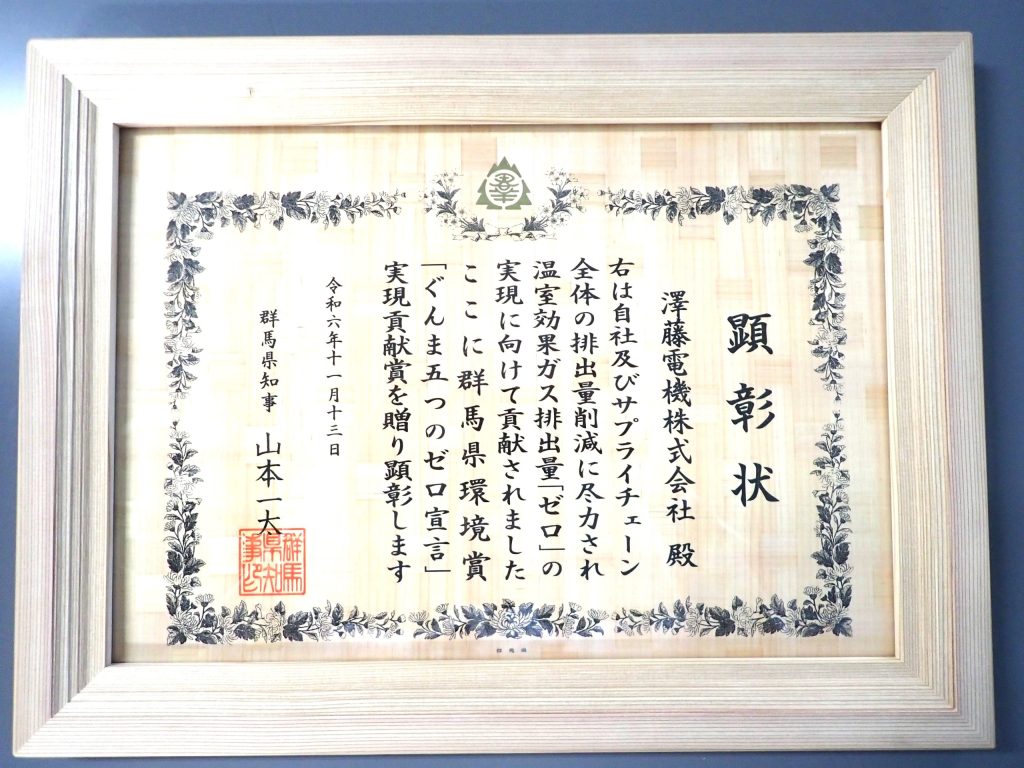 顕彰状
澤藤電機株式会社 殿
右は自社及びサプライチェーン
全体の排出量削減に尽力され
温室効果ガス排出量「ゼロ」の
実現に向けて貢献されました
ここに群馬県環境賞
「ぐんま五つのゼロ宣言」
実現貢献賞を贈り顕彰します
令和六年十一月十三日
群馬県知事 山本一太
群馬
県知
事印